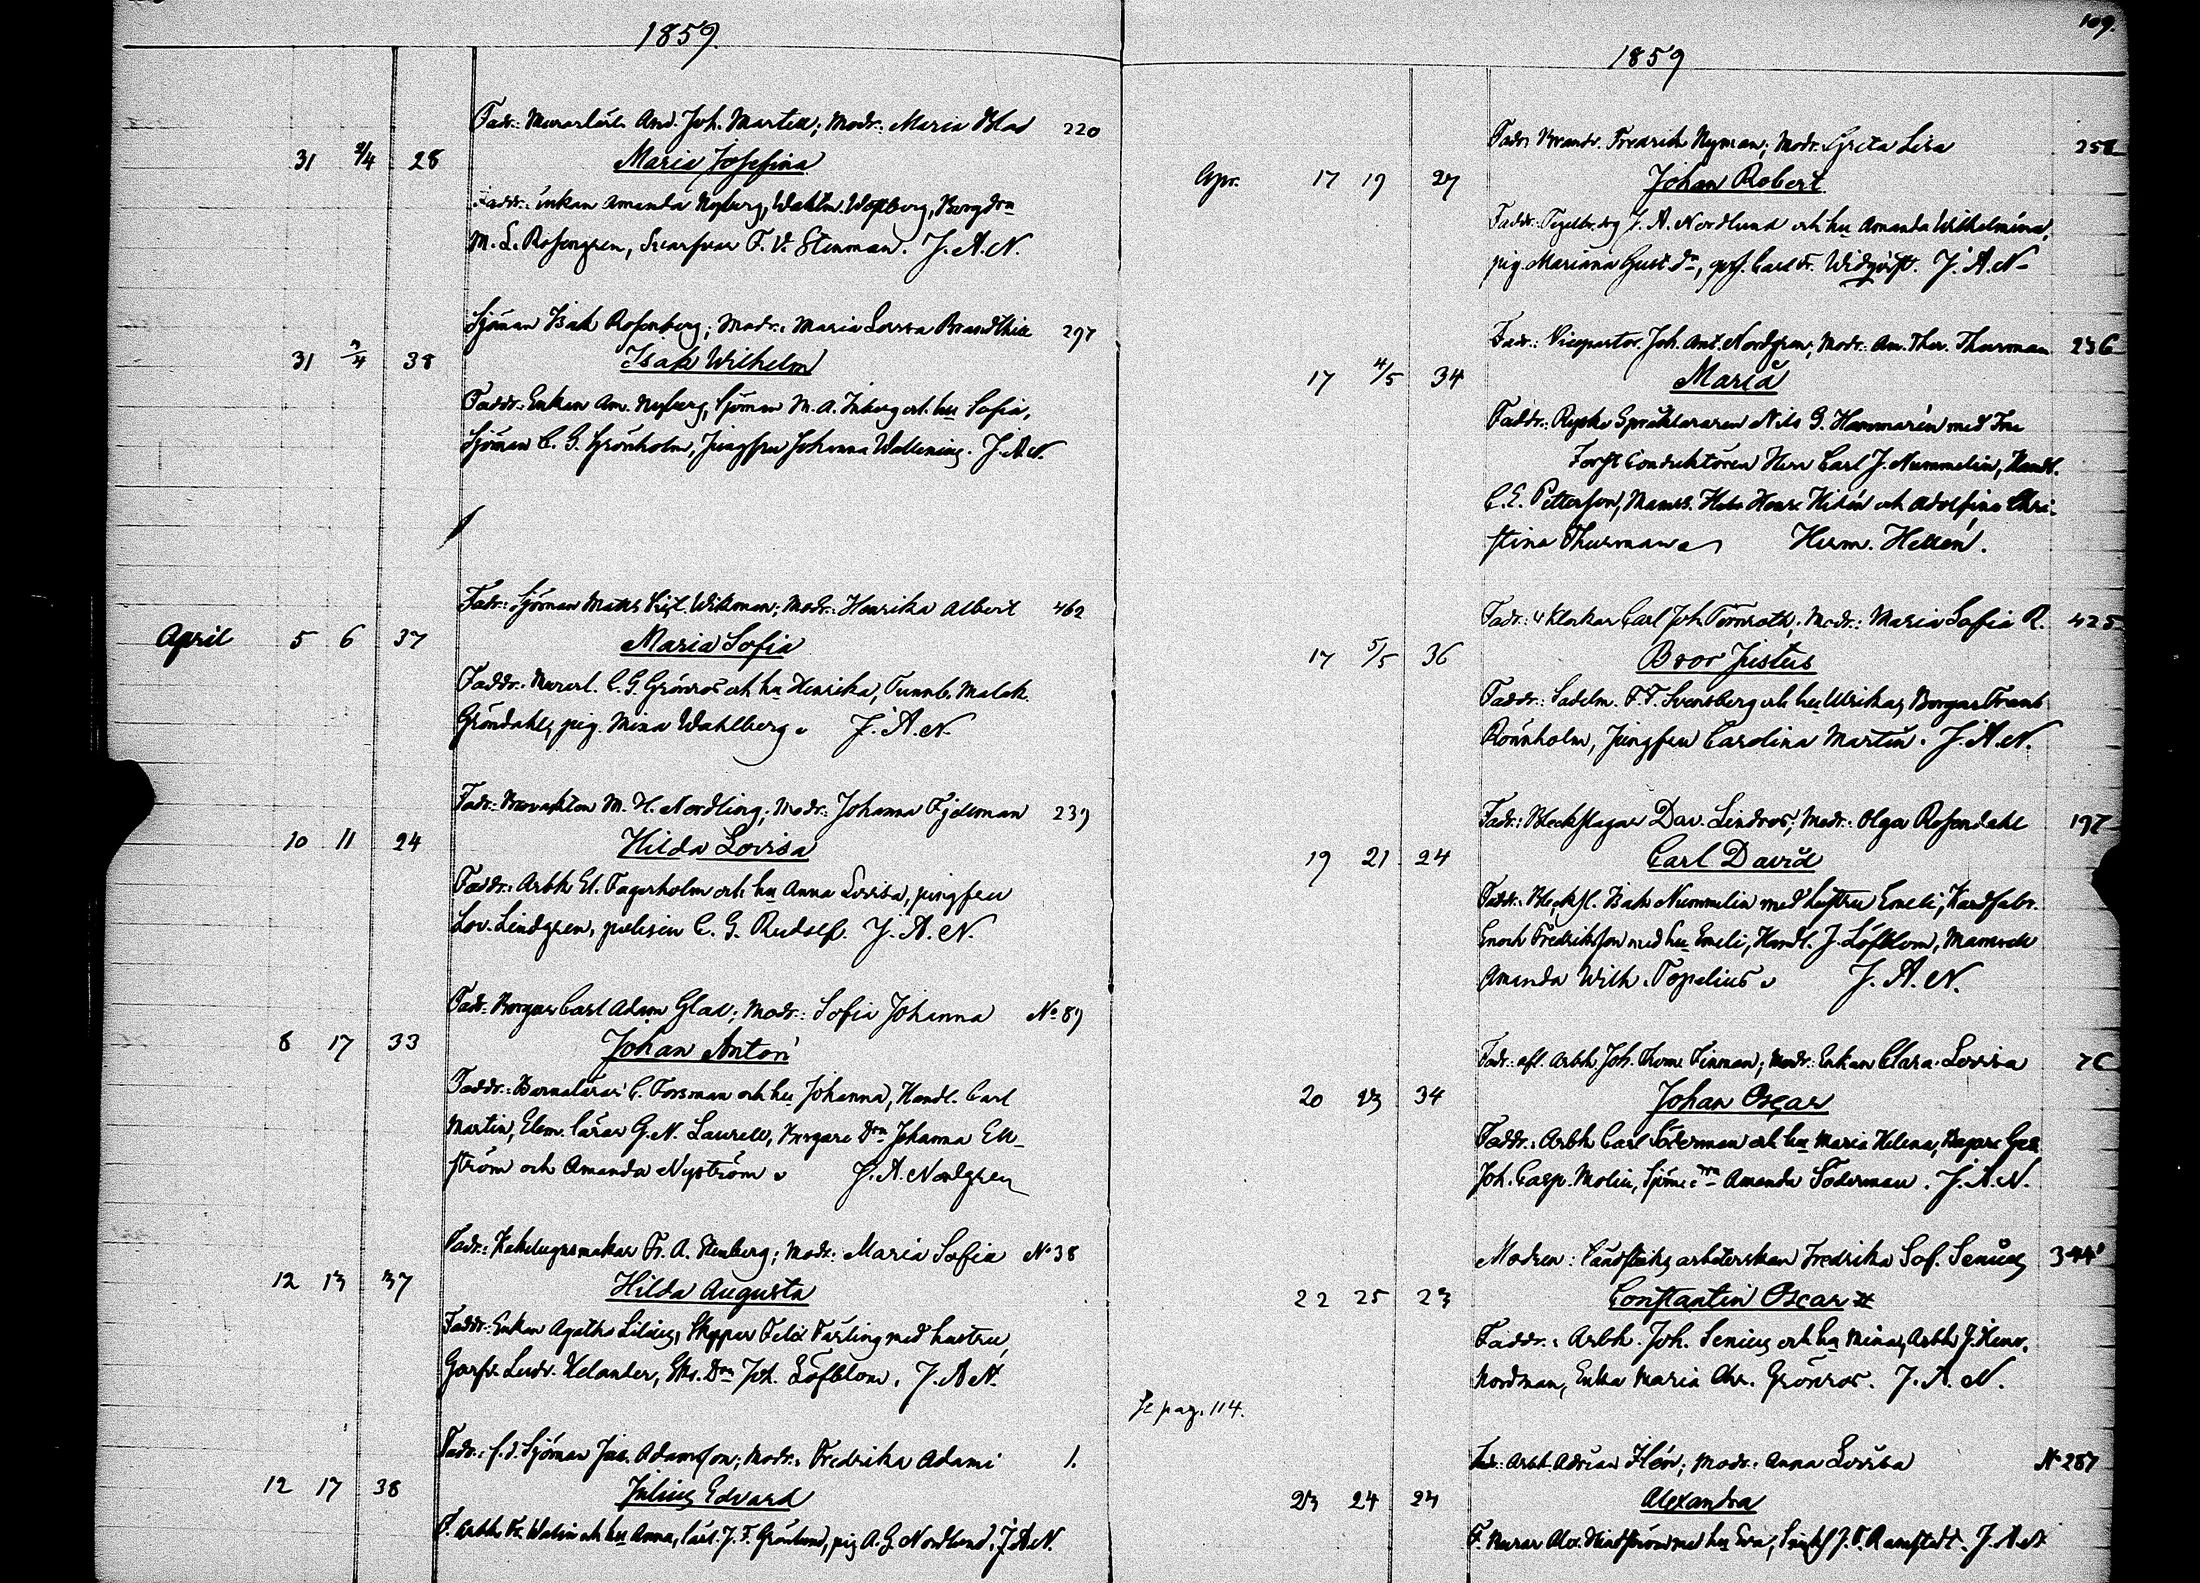 1859.
Fadr: Murarlärl. And. Joh. Martin; Modr: Maria Blad 220
31 2/4 28 Maria Josefina
Faddr: enkan Amanda Nyberg, Waktm. Wopberg, Borg dr
M. L. Rosengren, Svarfvar F. V. Stenman. J. A. N.
Sjöman Isak Rosenberg; Modr: Maria Lovisa Brandthil 297
31 2/4 38 Isak Wilhelm
Faddr: Enkan Am. Nyberg, Sjöman M. A. Inberg och hu Sofia,
Sjöman C. G. Grönholm, Jungfru Johanna Wallenius. J. A. N.
Fadr: Sjöman Matts Wikman; Modr: Henrika Albert 462
April 5 6 37 Maria Sofia
Faddr: Murarl. C. G. Grönros och hu Henrika, Tunnb. Malak.
Gröndahl, pig. Mina Wahlberg. J. A. N.
Fadr: M. H. Nordling; Modr: Johanna Fjelman 239
10 11 24 Hilda Lovisa
Faddr: Arbk El. Fagerholm och hu Anna Lovisa, jungfru
Lov. Lindgren, C. G. Rudolf. J. A. N.
Fadr: Borgar Carl Adam Glad; Modr: Sofia Johanna No 89
8 17 33 Johan Anton
Faddr: Barnalärar C. Forsman och hu Johanna, Handl. Carl
Martin, Elem. lärar G. N. Laurell, Borgare Drn Johanna Ek-
ström och Amanda Nyström. J. A. Nordgren
Fadr: Kakelugnsmakar Fr. A. Stenberg; Modr: Maria Sofia No 38
12 13 37 Hilda Augusta
Faddr: Enkan Agatha Lilius, Skeppar Felix Färling med hustru,
Garfv. Ludv. Helander, Drn Joh. Löfblom. J. A. N.
Fadr: f.d. Sjöman Jac. Adamsson; Modr: Fredrika Adami 1.
12 17 38 Julius Edvard
F. Arbk Fr. Walin och hu Anna, lärl. J. F. Grönlund, pig A. G. Nordlund. J. A. N.
109.
1859
Fadr Fredrich Nyman; Modr. Greta Lisa 258
Apr. 17 19 27 Johan Robert
Faddr: Tegelbr. drg J. A. Nordlund och hu Amanda Wilhelmina,
pig Mariana Gust. dr, Carl Fr. Widqvist. J. A. N.
Fadr: Vicepastor Joh. Ant. Nordgren, Modr: Am. Ther. Thurman 236
17 4/5 34 Maria
Faddr: Ryske Språkläraren Nils G. Hammarén med Fru
Forst Conduktören Herr Carl J. Nummelin, Handl.
C. E. Petterson, Mams. Hilén och Adolfina Chri-
stina Thurman. Herm. Hellén.
Fadr: Klockar Carl Joh. Törnroth; Modr: Maria Sofia R. 425
17 5/5 36 Bror Justus
Faddr: Sadelm. F. F. Svensberg och hu Ulrika, Borgar Frans
Rönnholm, Jungfru Carolina Martin. J. A. N.
Fadr: Bleckslagar Dav. Lindros; Modr: Olga Rosendahl 197
19 21 24 Carl David
Faddr: Blecksl. Isak Nummelin med hustru Emeli, Kardfabr.
Enoch Fredriksson med hu Emeli, Handl. J. Löfblom, Mamsell
Amanda Wilh. Topelius. J. A. N.
Fadr: afl. Arbk. Joh. Thom. Finman; Modr: Enkan Clara Lovisa 76
20 23 34 Johan Oscar
Faddr: Arbk Carl Söderman och hu Maria Helena, Bagare Gesäll
Joh. Casp. Molin, Sjöm. drn Amanda Söderman. J. A. N.
Modren: arbeterskan Fredrika Sof. Senius 344
22 25 23 Constantin Oscar #
Faddr: Arbk. Joh. Senius och hu Mina, Arbk J. Henr.
Nordman, Enka Maria Chr. Grönros. J. A. N.
Se pag. 114.
Fadr: Arbk. Adrian Flén; Modr: Anna Lovisa No 287
23 24 23 Alexandra
F. Murar Alex. Hindström med hu Eva, J. F. Ramstedt. J. A. N.